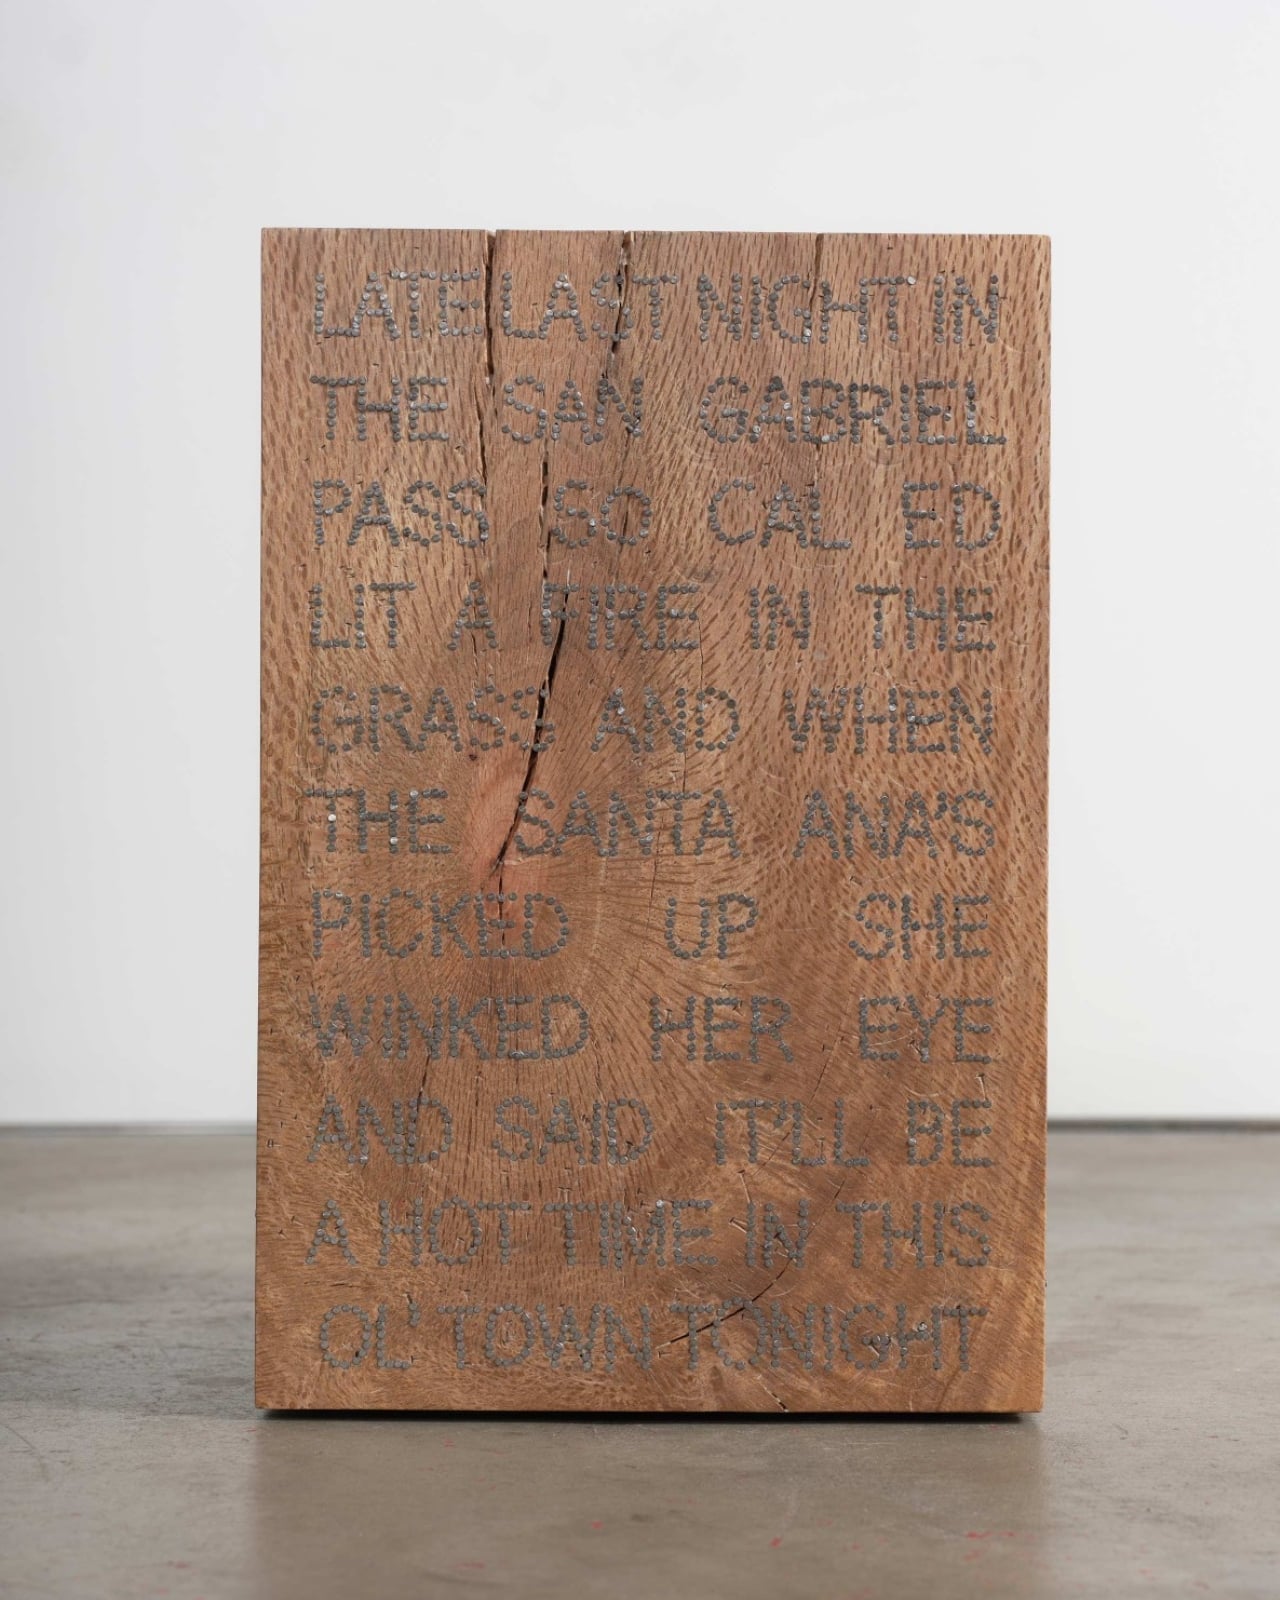 LATE LAST NIGHT IN
THE SAN GABRIEL
PASS SO CAL ED
LIT A FIRE IN THE
GRASS AND WHEN
THE SANTA ANA'S
PICKED UP SHE
WINKED HER EYE
AND SAID IT'LL BE
A HOT TIME IN THIS
OL' TOWN TONIGHT